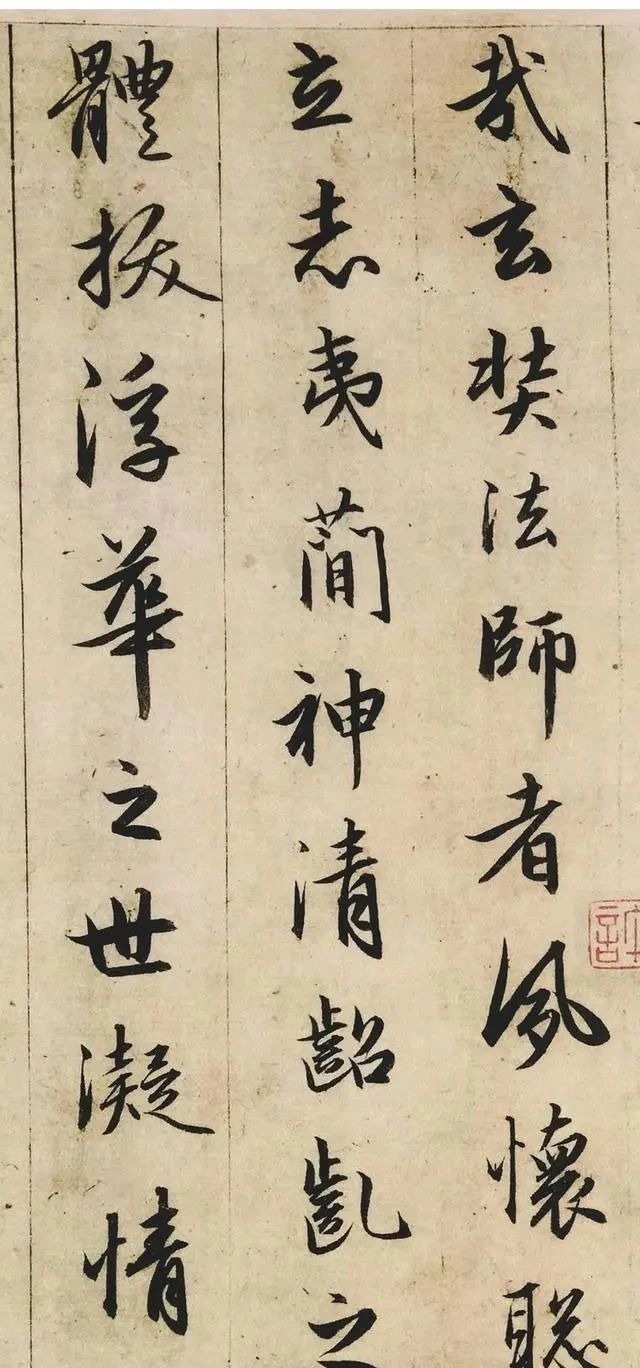 哉玄奘法師者夙懷聰
立志夷簡神清齠齔之
體拔浮華之世凝情